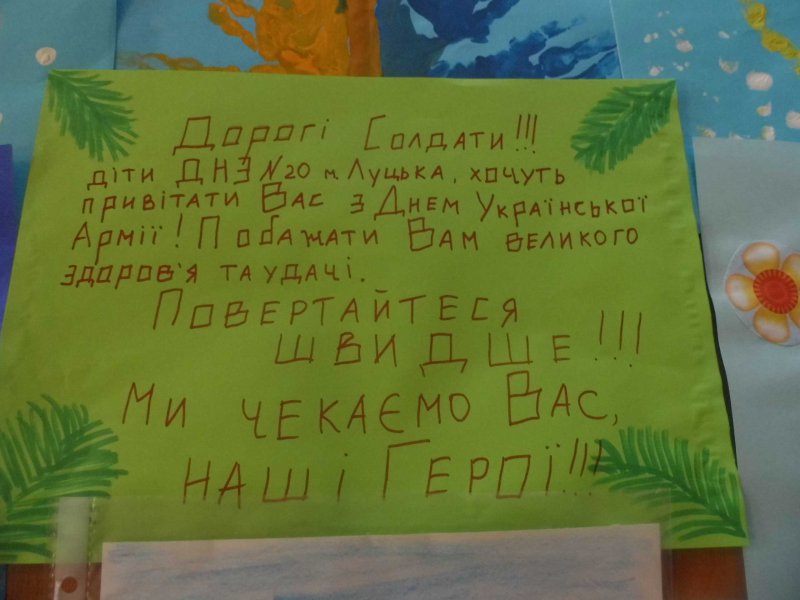 Дорогі Солдати!!!
діти ДНЗ №20 м. Луцька, хочуть
привітати Вас з Днем Української
Армії! Побажати Вам великого
здоров'я та удачі.
Повертайтеся
швидше!!!
Ми чекаємо Вас,
наші Герої!!!